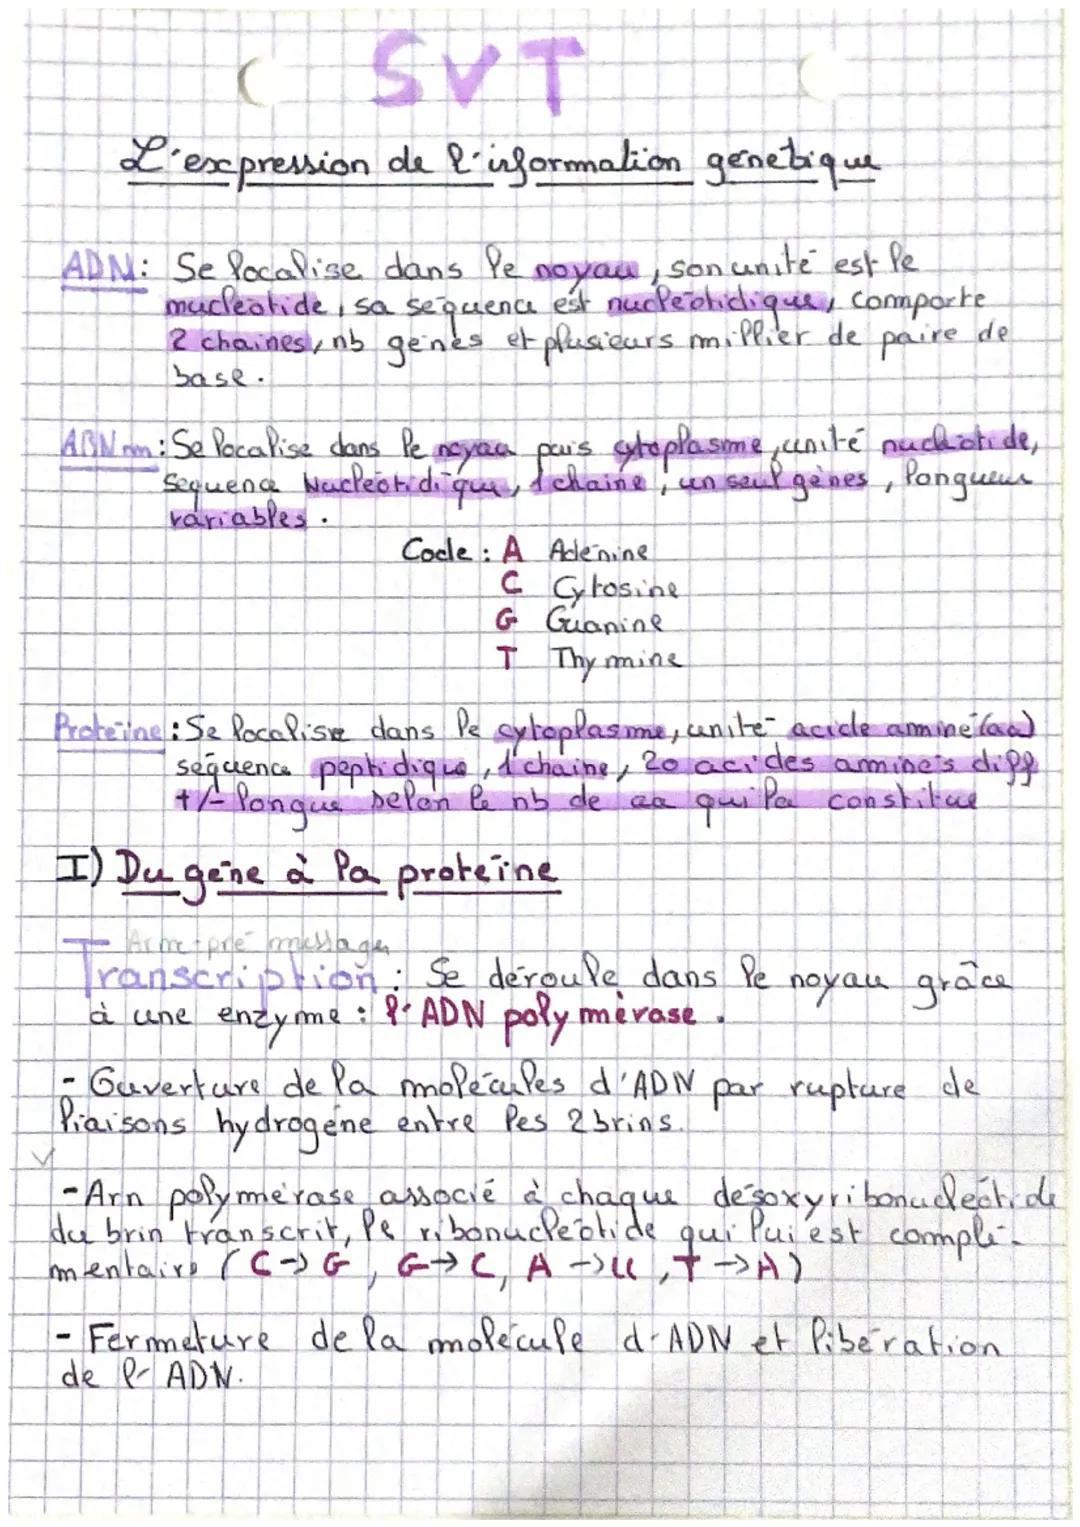 SVT
L'expression de l'information génétique
ADN: Se localise dans le noyau, son unité est le
nucléotide, sa séquence est nucléotidique, comporte
2 chaines, nb gènes et plusieurs millier de paire de
base.
ARNm: Se localise dans le noyau puis cytoplasme, unité nucléotide,
Séquence Nucléotidique, 1 chaine, un seul gènes, longueur
variables.
Code : A Adénine
C Cytosine
G Guanine
T Thymine
Protéine : Se localise dans le cytoplasme, unité acide aminé (aa)
séquence peptidique, 1 chaine, 20 acides aminés diff
+/- longue selon le nb de aa qui la constitue
I) Du gène à la protéine
Arm-pré messager
Transcription : Se déroule dans le noyau grâce
à une enzyme : l'ADN polymérase.
- Ouverture de la molécules d'ADN par rupture de
liaisons hydrogène entre les 2 brins.
- Arn polymérase associé à chaque désoxyribonucléotide
du brin transcrit, le ribonucléotide qui lui est complé-
mentaire (C→G, G→C, A→U, T→A)
- Fermeture de la molécule d'ADN et libération
de l'ADN.